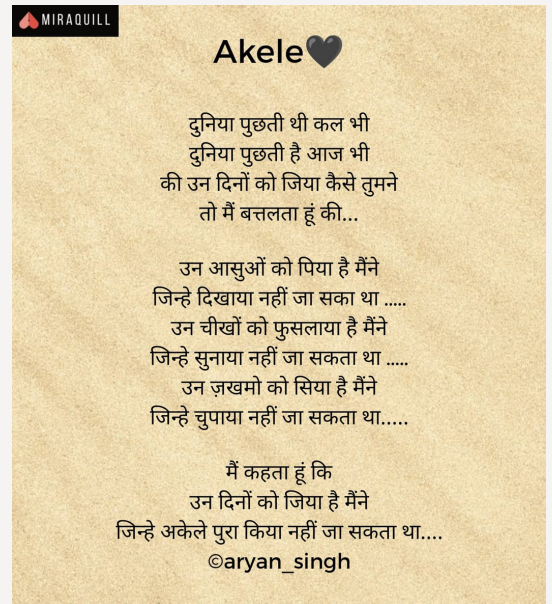 MIRAQUILL
Akele🖤
दुनिया पुछती थी कल भी
दुनिया पुछती है आज भी
की उन दिनों को जिया कैसे तुमने
तो मैं बत्तलता हूं की...
उन आसुओं को पिया है मैंने
जिन्हे दिखाया नहीं जा सका था .....
उन चीखों को फुसलाया है मैंने
जिन्हे सुनाया नहीं जा सकता था .....
उन ज़खमो को सिया है मैंने
जिन्हे चुपाया नहीं जा सकता था.....
मैं कहता हूं कि
उन दिनों को जिया है मैंने
जिन्हे अकेले पुरा किया नहीं जा सकता था....
©aryan_singh